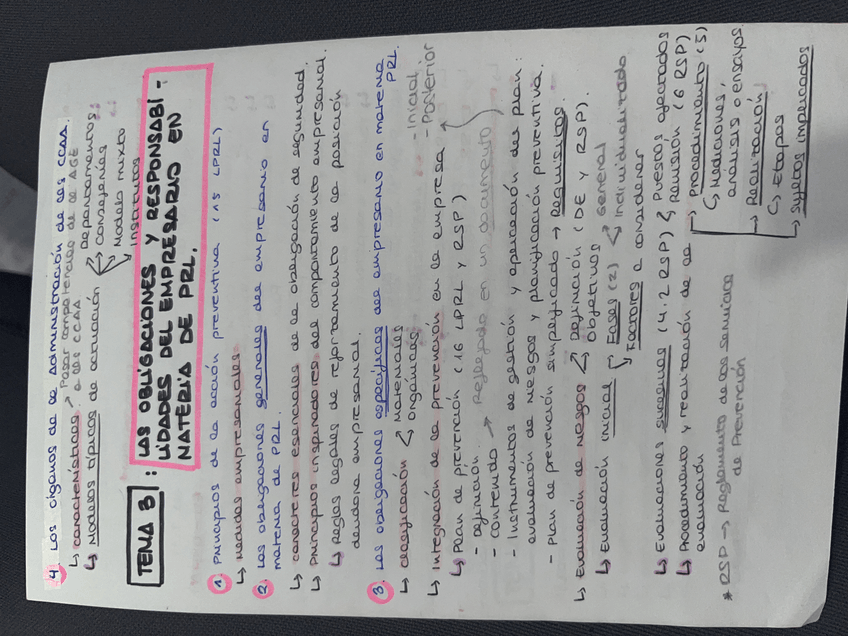 4 Los órganos de la administración de las CCAA.
↳ características → Pasar competencias de la AGE
a las CCAA
↳ Modelos típicos de actuación
Departamentos
Consejerías
Modelo mixto
Institutos
TEMA 3: LAS OBLIGACIONES Y RESPONSABI-
LIDADES DEL EMPRESARIO EN
MATERIA DE PRL.
1. Principios de la acción preventiva (15 LPRL)
↳ Medidas empresariales
2. Las obligaciones generales del empresario en
materia de PRL.
↳ caracteres esenciales de la obligación de seguridad.
↳ Principios inspiradores del comportamiento empresarial.
↳ Reglas legales de reforzamiento de la posición
deudora empresarial.
3. Las obligaciones específicas del empresario en materia
PRL.
↳ clasificación < Materiales
Orgánicas
- Inicial
- Posterior
↳ Integración de la prevención en la empresa
↳ Plan de prevención (16 LPRL y RSP)
- definición
- contenido → Reflejado en un documento
- Instrumentos de gestión y aplicación del plan:
evaluación de riesgos y planificación preventiva.
- Plan de prevención simplificado → Requisitos
↳ Evaluación de riesgos < Definición (DE y RSP).
Objetivos
↳ Evaluación inicial
Fases (2) < General
Individualizado
Factores a considerar
↳ Evaluaciones sucesivas (4.2 RSP)
Puestos afectados
revisión (6 RSP)
↳ Procedimiento y realización de la
evaluación
→ Procedimiento (5)
↳ Mediciones,
análisis o ensayos
→ Realización
↳ Etapas
→ Sujetos implicados
* RSP → Reglamento de los servicios
de Prevención